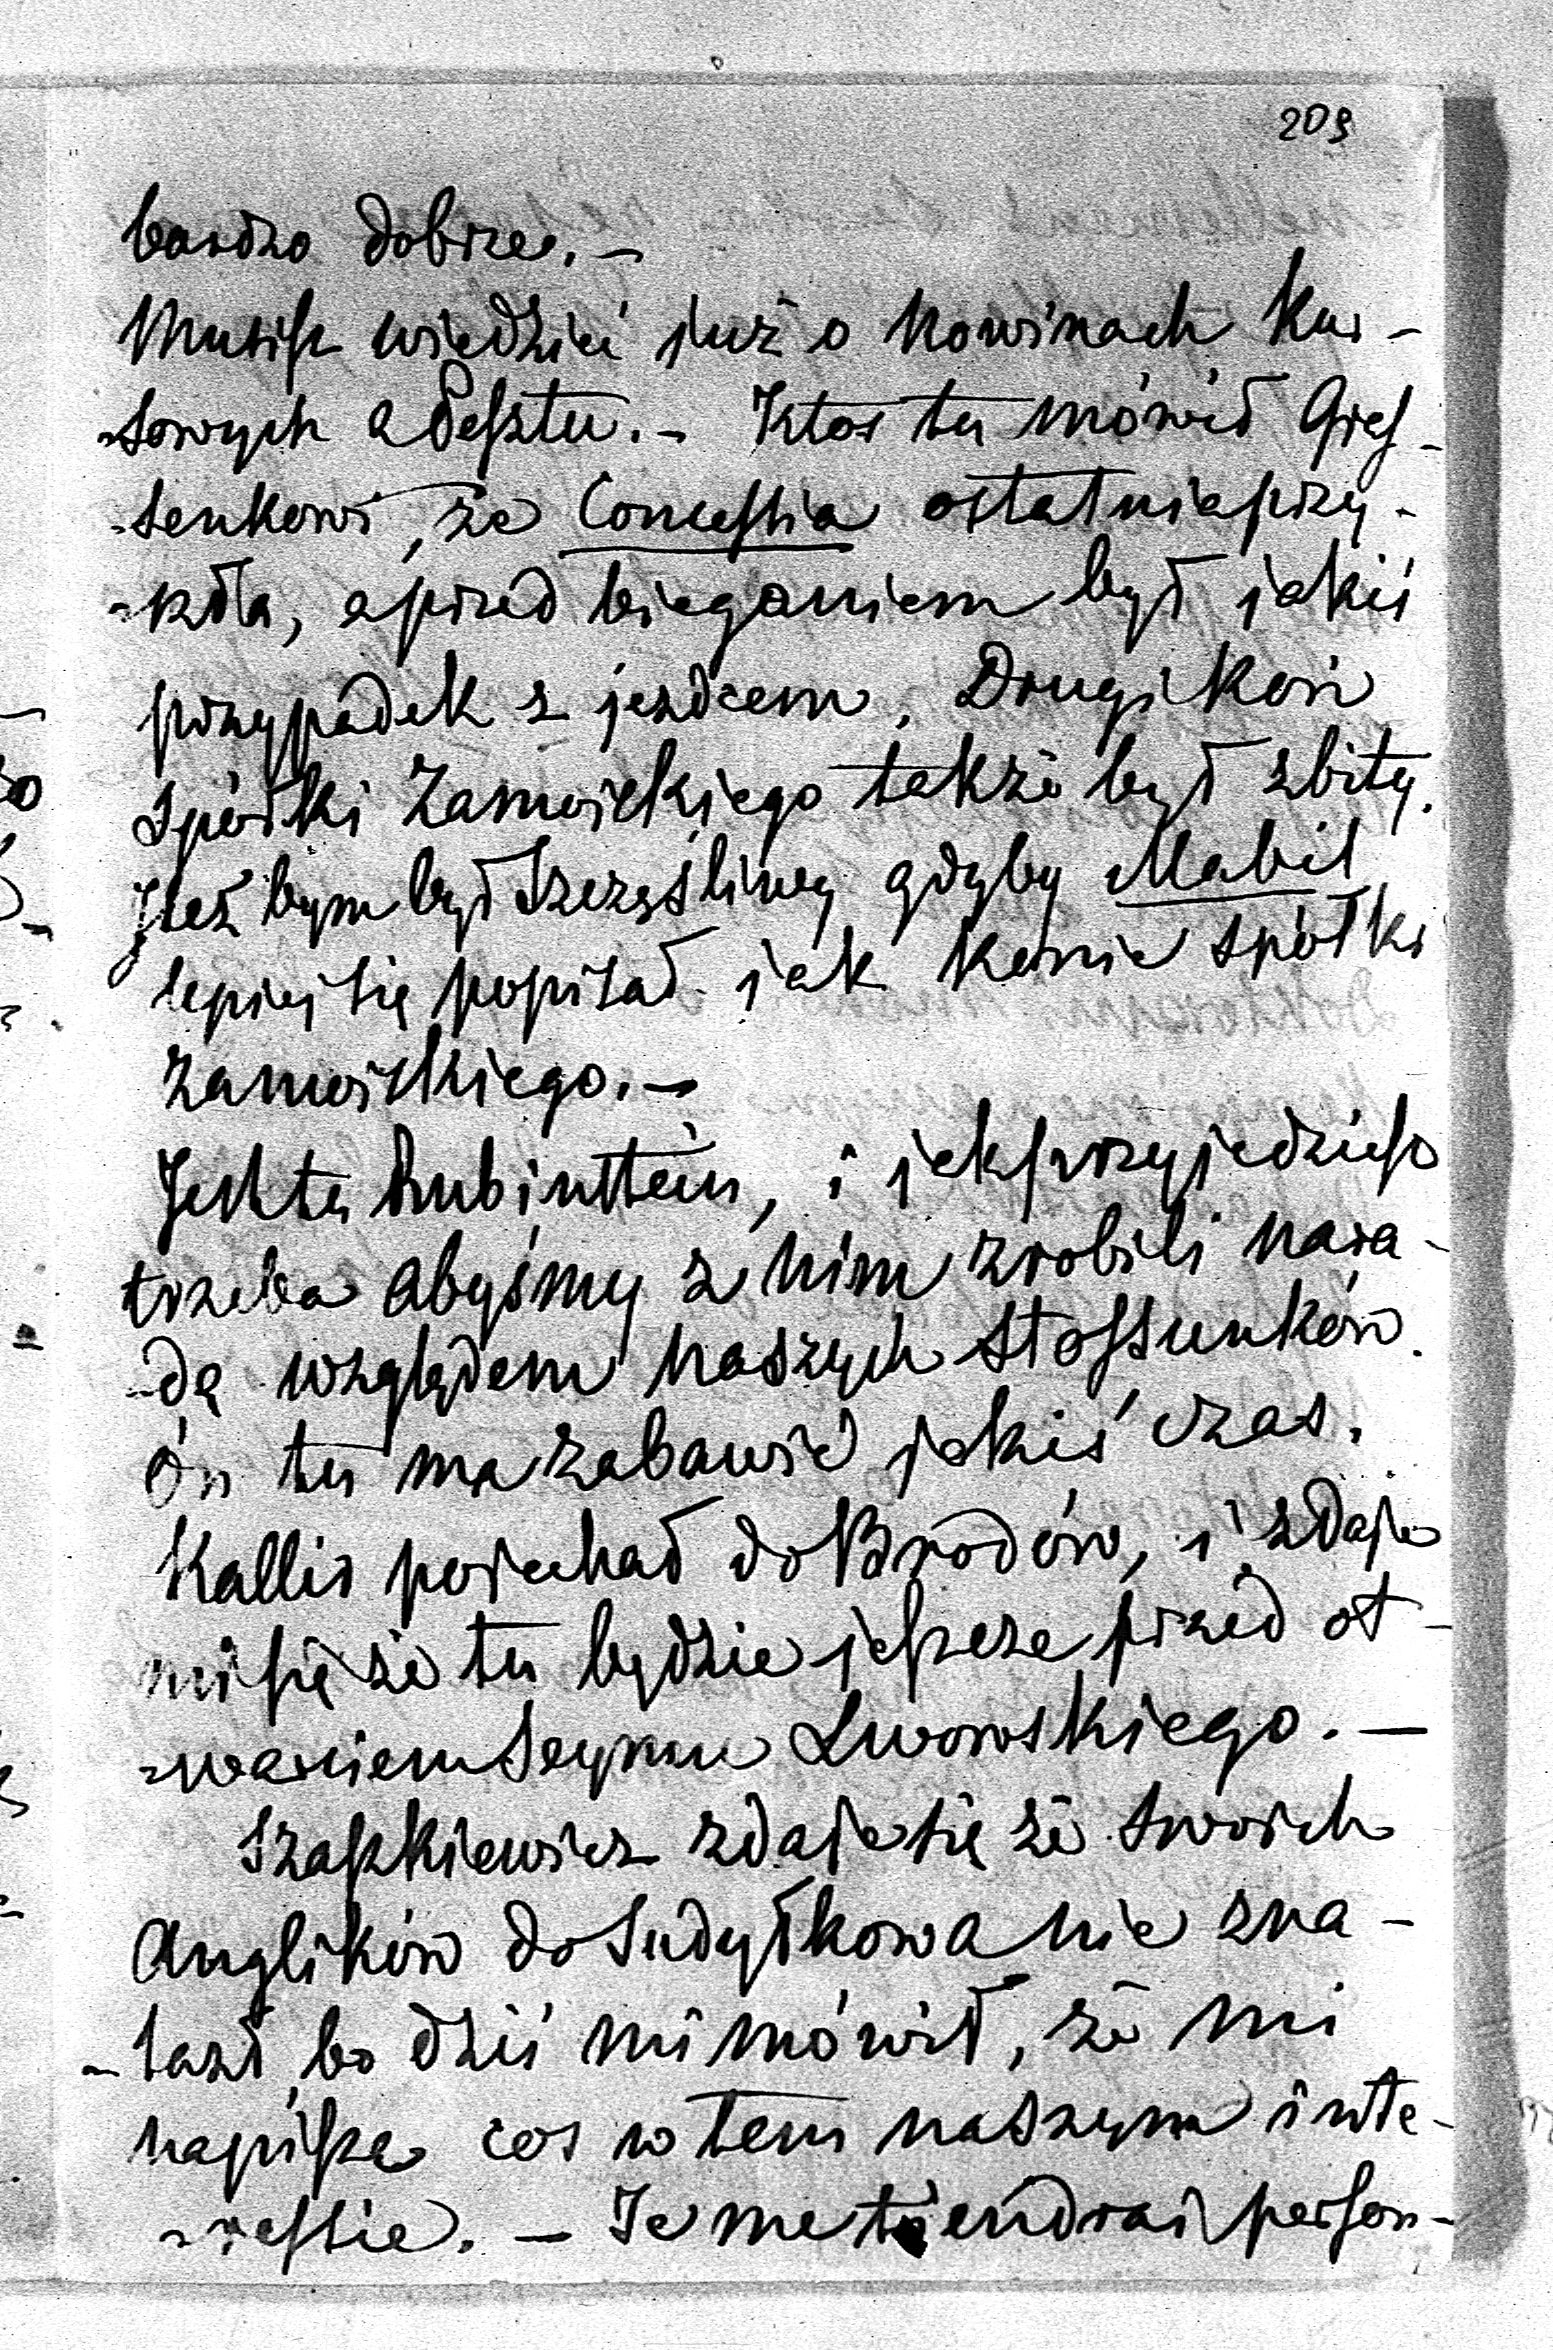 209
bardzo dobrze. –
Musisz wiedzieć już o nowinach kur-
-sowych z Pesztu. – Ktoś tu mówił Gies-
-senkowi, że Concessia ostatnia przy-
-szła, a przed bieganiem był jakiś
przypadek z jezdcem. Drugi koń
Spółki Zamoickiego także był zbity.
Jżeż bym był szczęśliwy gdyby Mabil
lepiej się popisał jak konie spółki
Zamoickiego. –
Jest tu Rubinstein, i jak przyjedziesz
trzeba abyśmy z nim zrobili nara-
-dę względem naszych stossunków.
On tu ma zabawić jakiś czas.
Kallir pojechał do Brodów, i zdaje
mi się że tu będzie jeszcze przed ot-
-warciem Seymu Lwowskiego. –
Szaszkiewicz zdaje się że swoich
Anglików do Sudyłkowa nie zna-
-lazł, bo dziś mi mówił, że mi
napisze coś w tem naszym inte-
-ressie. – Je me tiendrai person-